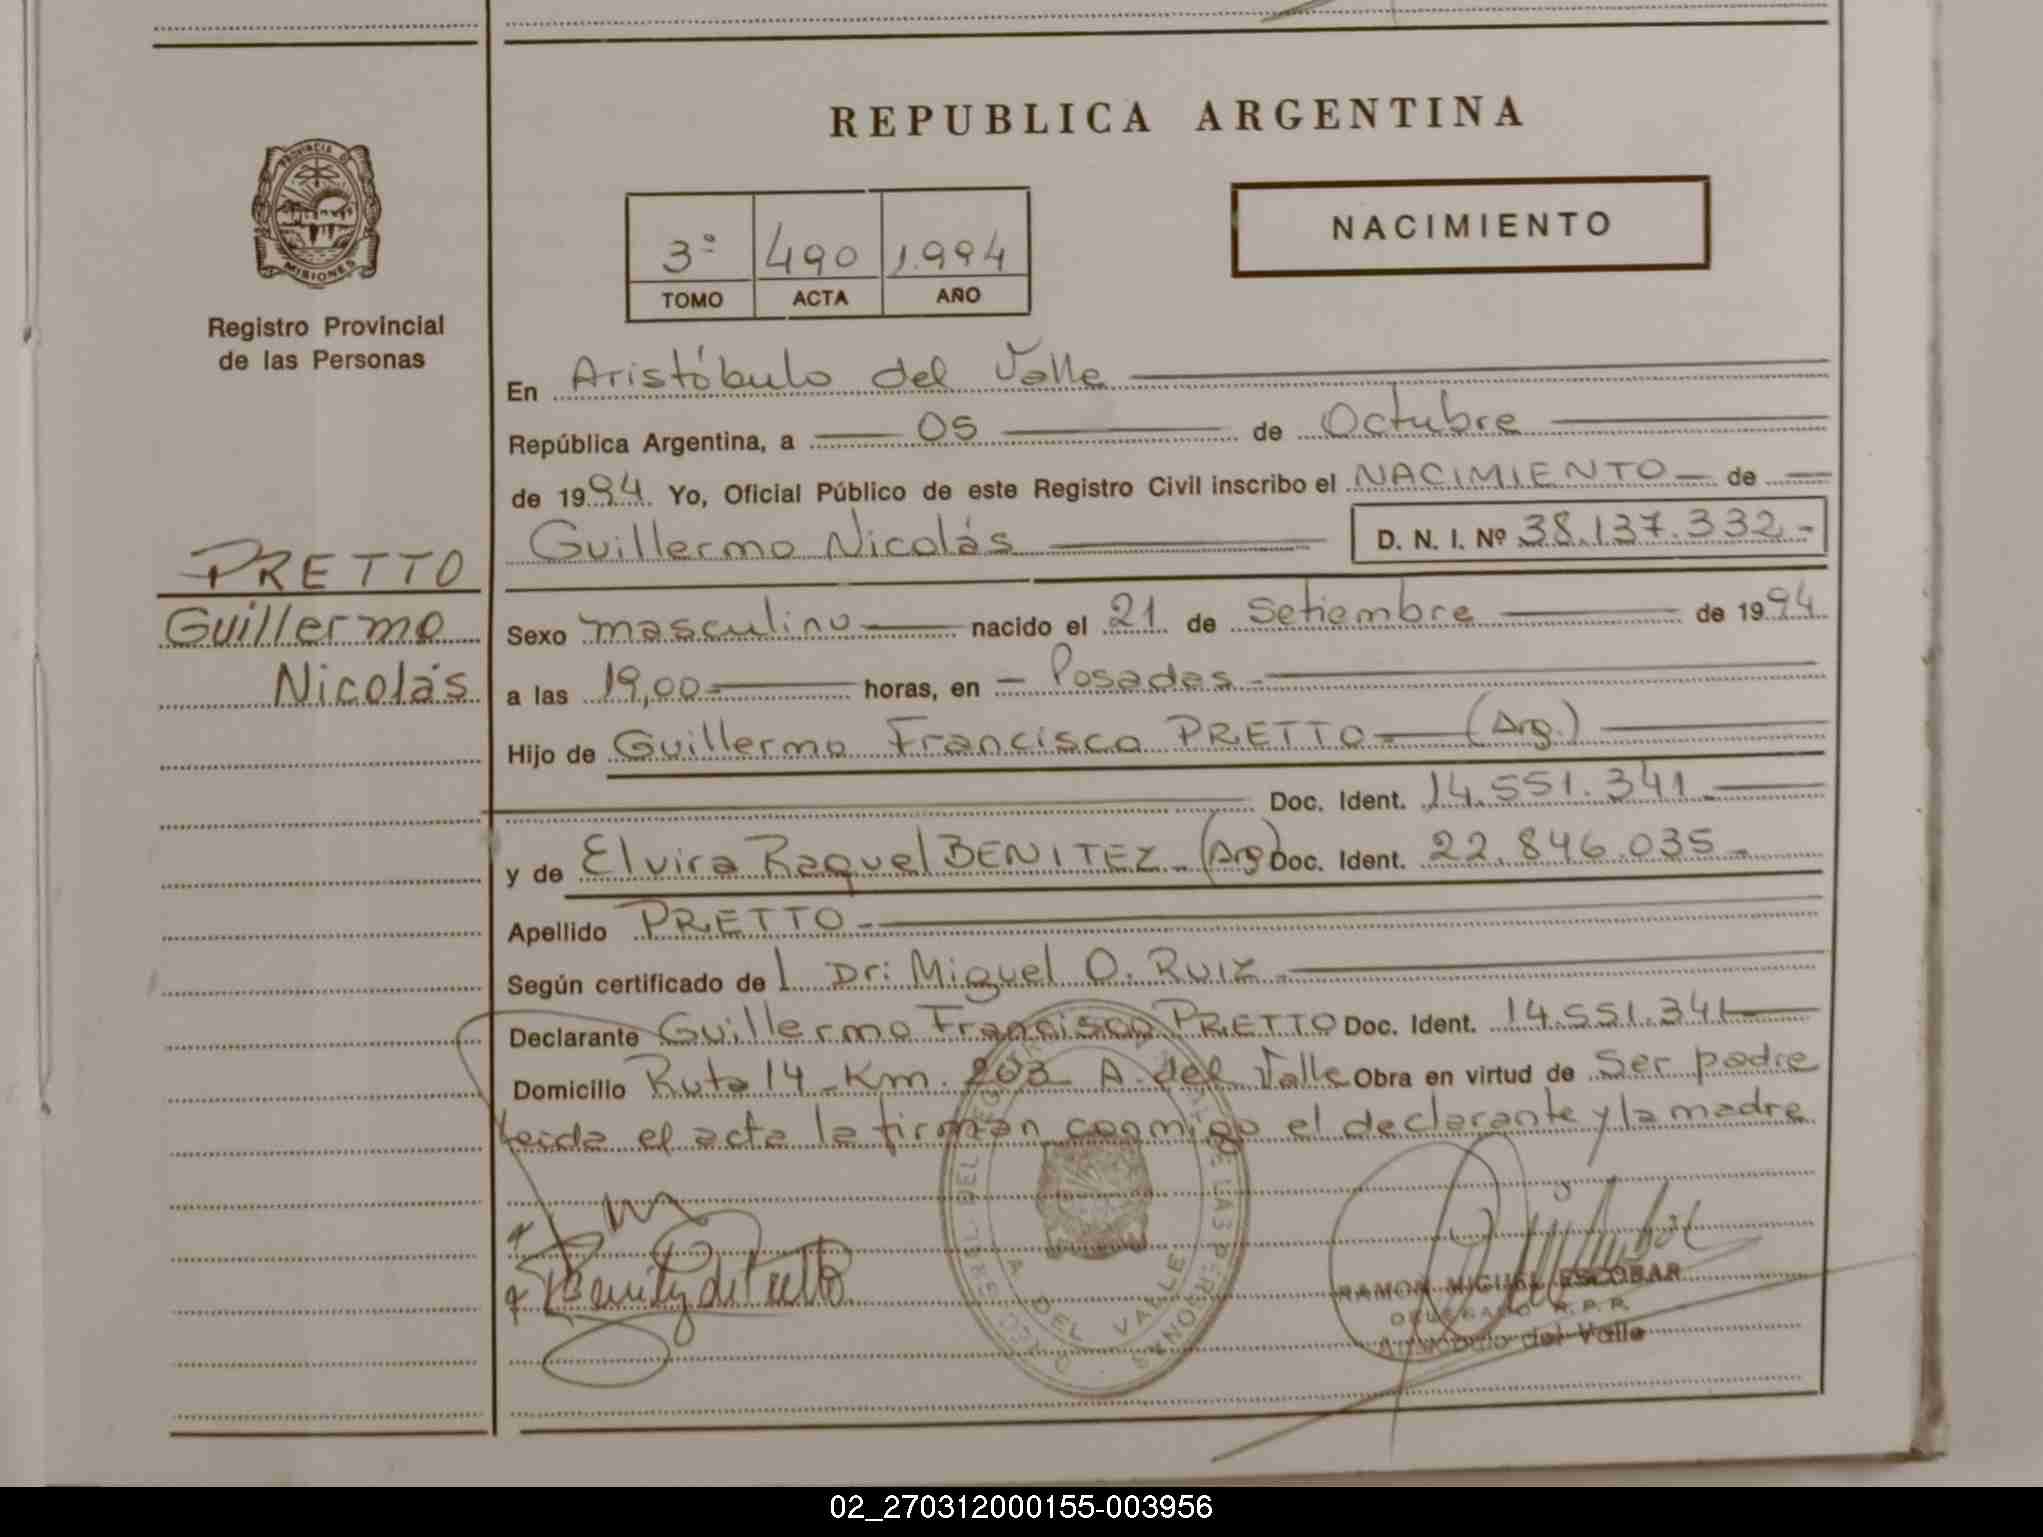 REPUBLICA ARGENTINA
PROVINCIA DE
MISIONES
Registro Provincial
de las Personas
3º 490 1.994
TOMO ACTA AÑO
NACIMIENTO
En Aristóbulo del Valle
República Argentina, a 05 de Octubre
de 1994. Yo, Oficial Público de este Registro Civil inscribo el NACIMIENTO de
Guillermo Nicolás D. N. I. Nº 38.137.332.-
PRETTO
Guillermo
Nicolás
Sexo masculino nacido el 21 de Setiembre de 1994
a las 19,00 horas, en Posadas.-
Hijo de Guillermo Francisco PRETTO (Arg.)
Doc. Ident. 14.551.341.-
y de Elvira Raquel BENITEZ.- (Arg) Doc. Ident. 22.846.035.-
Apellido PRETTO.-
Según certificado de l Dr: Miguel O. RUIZ.-
Declarante Guillermo Francisco PRETTO Doc. Ident. 14.551.341
Domicilio Ruta 14 Km. 203 A. del Valle Obra en virtud de Ser padre
leida el acta la firman conmigo el declarante y la madre
Benitez de Pretto
DEL VALLE
RAMON MIGUEL ESCOBAR
DELEGADO R.P.P.
Aristóbulo del Valle
02_270312000155-003956